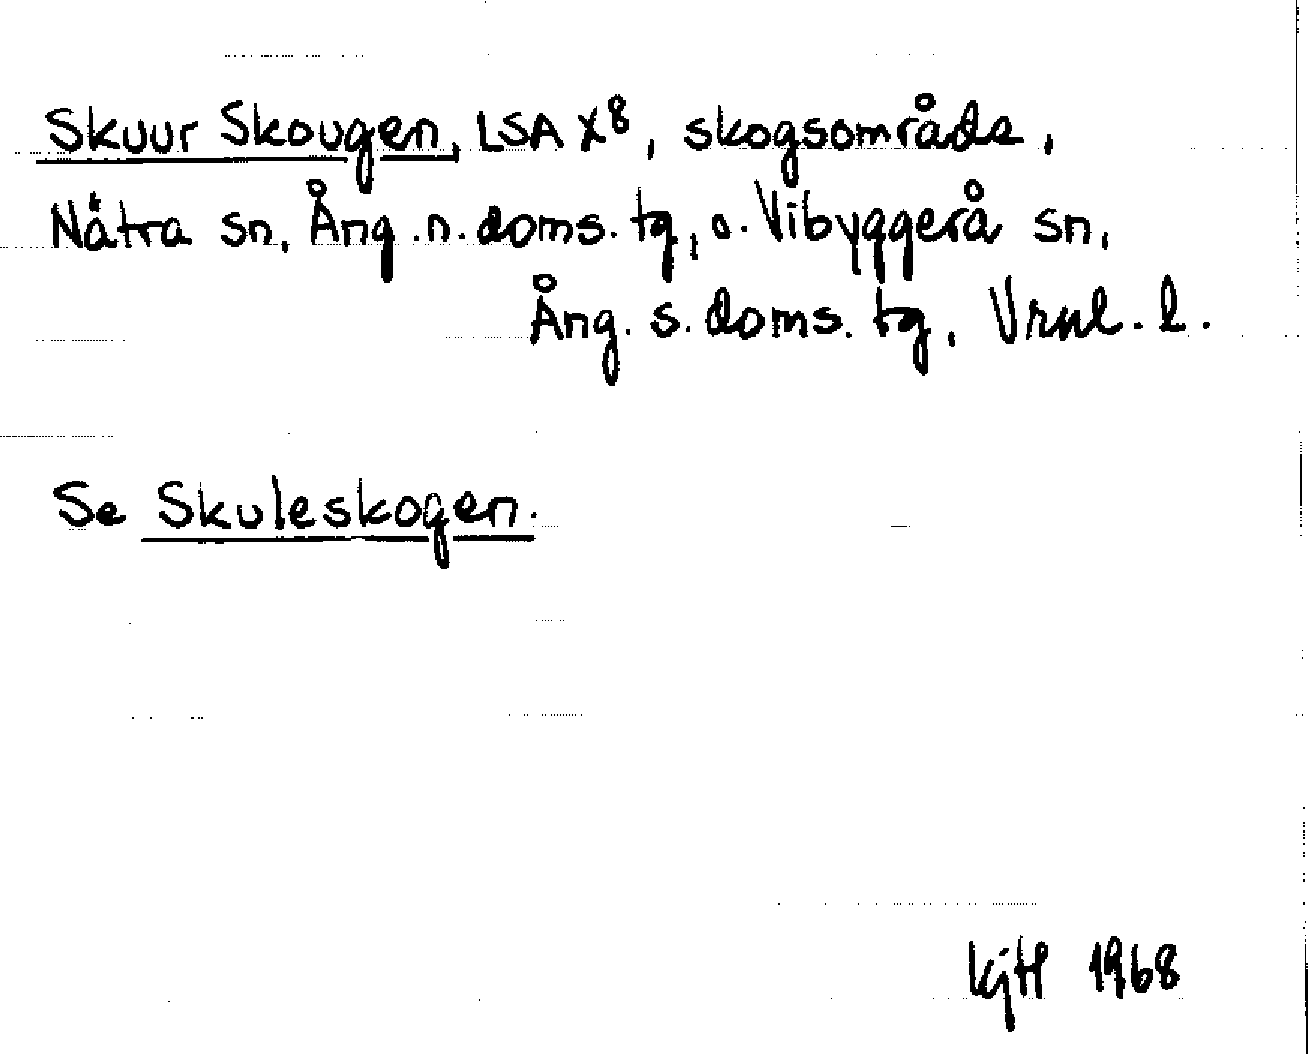 Skuur Skougen, LSA X8, skogsområde,
Nätra sn, Ång. n. doms. tg, o. Vibyggerå sn,
Ång. s. doms. tg, Vrnl. l.
Se Skuleskogen.
KjH 1968